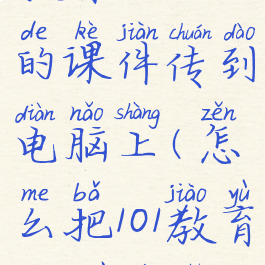 de kè jiàn chuán dào
的课件传到
diàn nǎo shàng zěn
电脑上(怎
me bǎ jiào yù
么把101教育